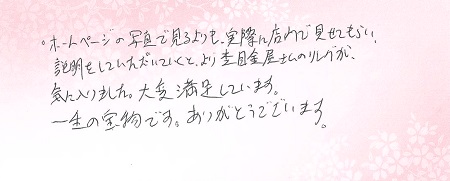 。ホームページの写真で見るよりも、実際に店内で見せてもらい、
説明をしていただいていくと、より杢目金屋さんのリングが、
気に入りました。大変満足しています。
一生の宝物です。ありがとうございます。